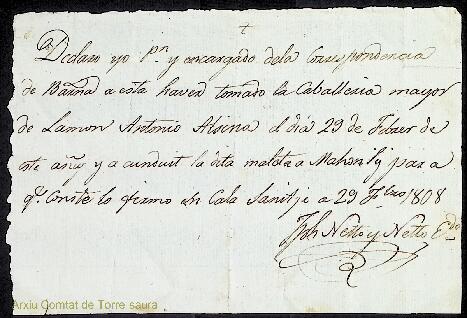 Declaro yo pn y encargado dela Correspondencia
de Barna a esta haver tomado la Caballeria mayor
de Lamon Antonio Alsina el dia 29 de Febrer de
este año y a cunduit la dita maleta a Mahon y para
q. Conste lo firmo en Cala Sanitje a 29 Fbro 1808
Jph Netto y Netto
Arxiu Comtat de Torre saura